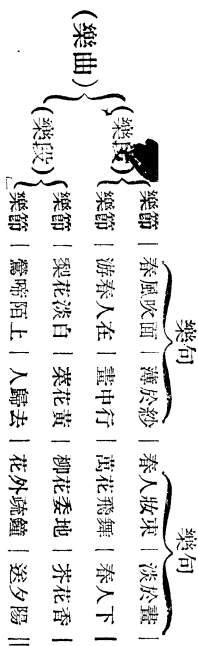 樂句 樂句
樂節|春風吹面|薄於紗|春人妝束|淡於畫|
樂節|游春人在|畫中行|萬花飛舞|春人下|
樂節|梨花淡白|菜花黃|柳花委地|芥花香|
樂節|鶯啼陌上|人歸去|花外疏鐘|送夕陽||
(樂段)
(樂段)
(樂曲)